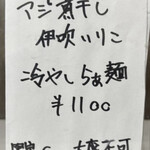 アジ煮干し
伊吹いりこ
冷やしらぁ麺
￥1100